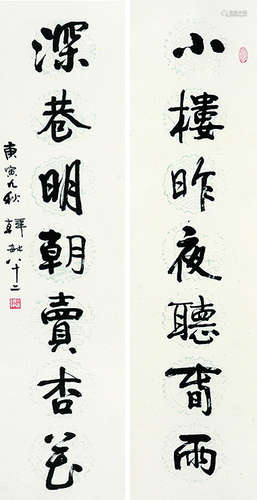 小樓昨夜聽旾雨
深巷明朝賣杏花
庚寅九秋韓敏八十二